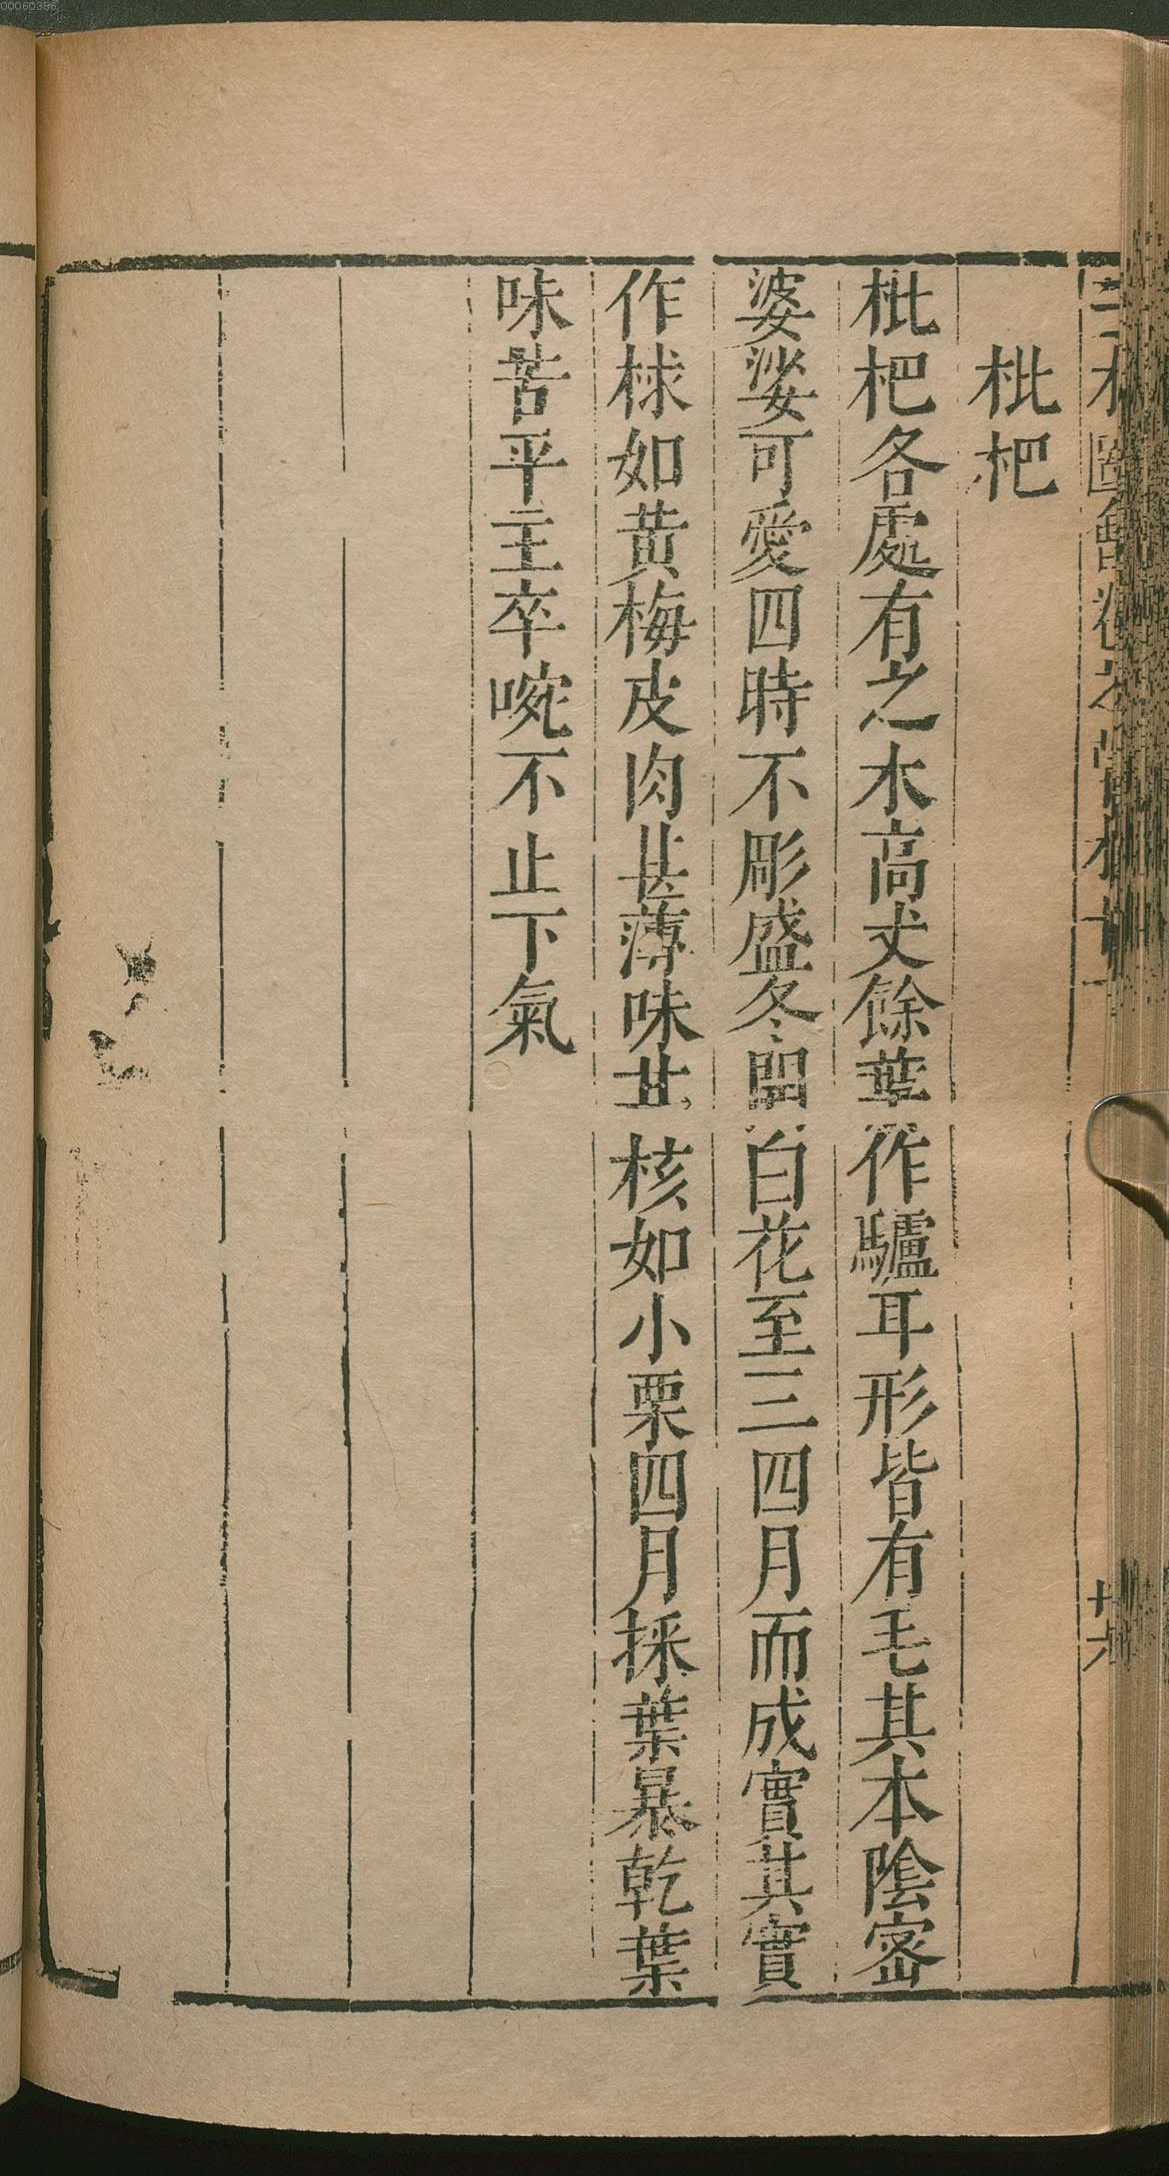 枇杷
枇杷各處有之木高丈餘葉作驢耳形皆有毛其本陰密
婆娑可愛四時不彫盛冬開白花至三四月而成實其實
作梂如黃梅皮肉甚薄味甘核如小栗四月採葉暴乾葉
味苦平主卒啘不止下氣
00060386